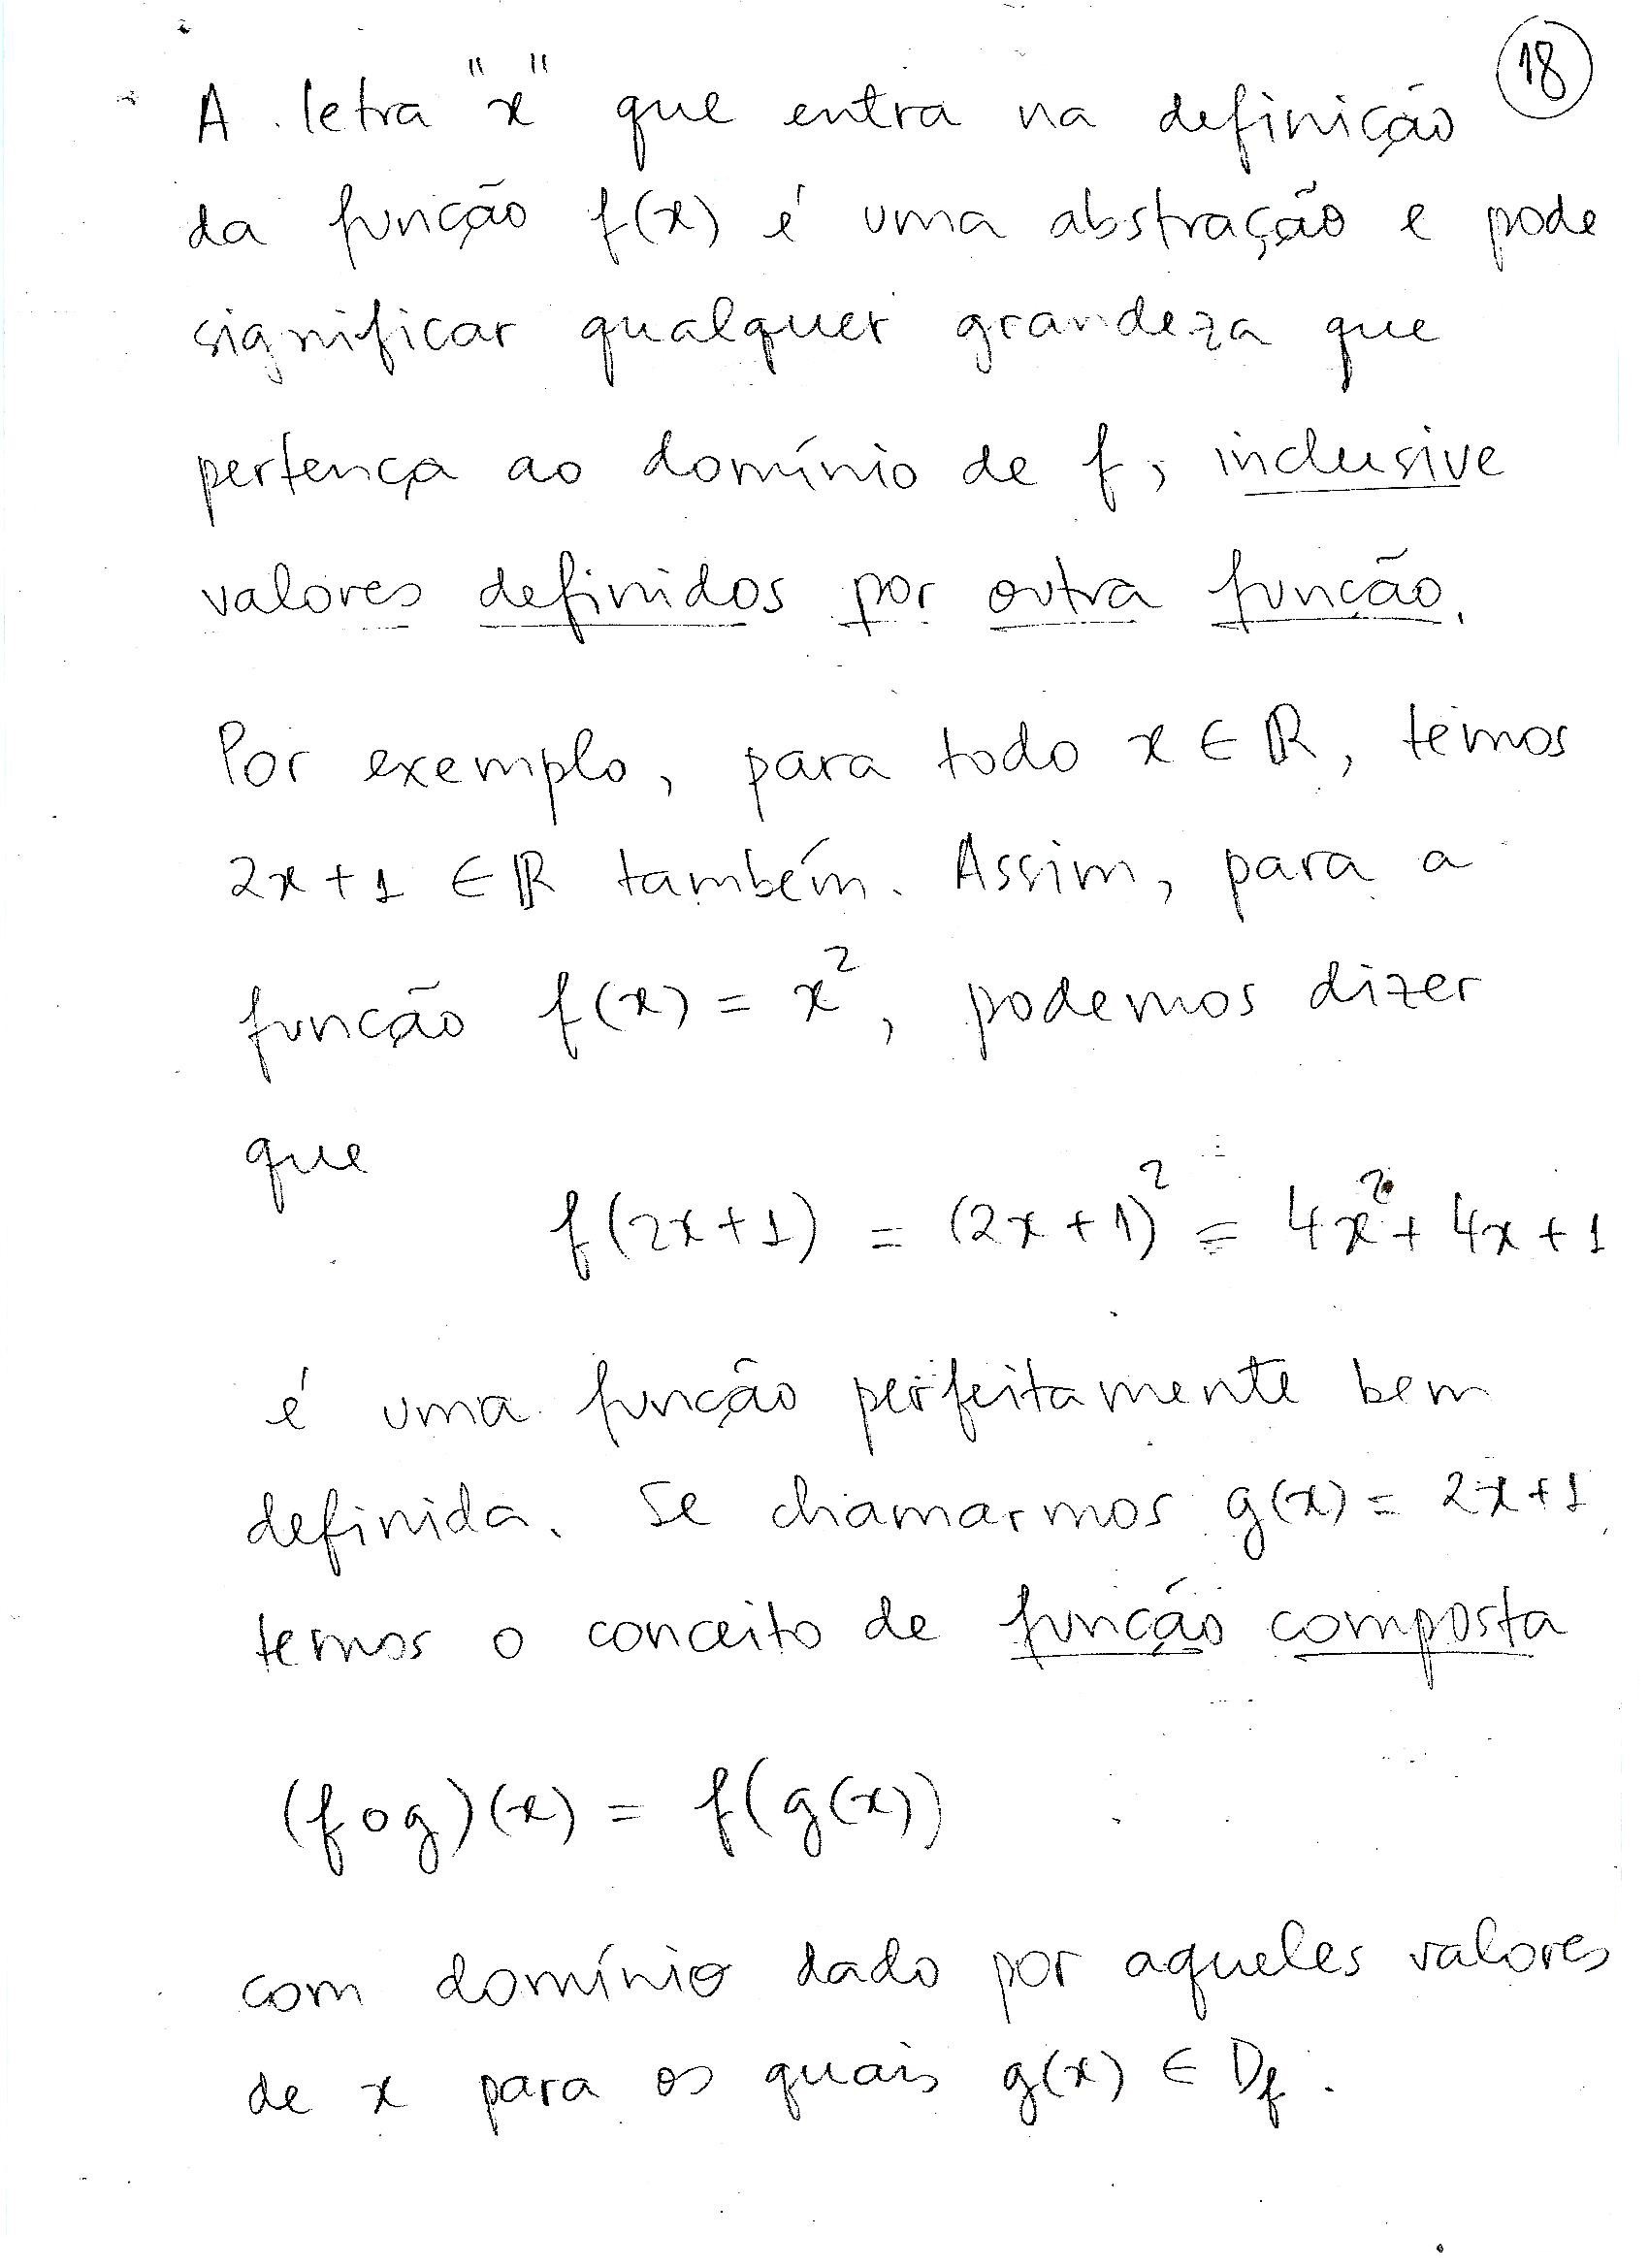 18
A letra "x" que entra na definição
da função f(x) é uma abstração e pode
significar qualquer grandeza que
pertença ao domínio de f, inclusive
valores definidos por outra função.
Por exemplo, para todo x ∈ ℝ, temos
2x+1 ∈ ℝ também. Assim, para a
função f(x) = x², podemos dizer
que
f(2x+1) = (2x+1)² = 4x² + 4x + 1
é uma função perfeitamente bem
definida. Se chamarmos g(x) = 2x+1,
temos o conceito de função composta
(f∘g)(x) = f(g(x))
com domínio dado por aqueles valores
de x para os quais g(x) ∈ D_f.